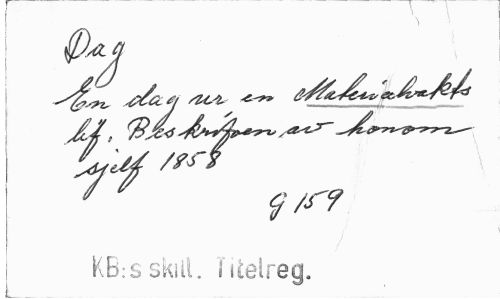 Dag
En dag ur en Materialvakts
lif. Beskrifven av honom
sjelf 1858
G 159
KB:s skill. Titelreg.